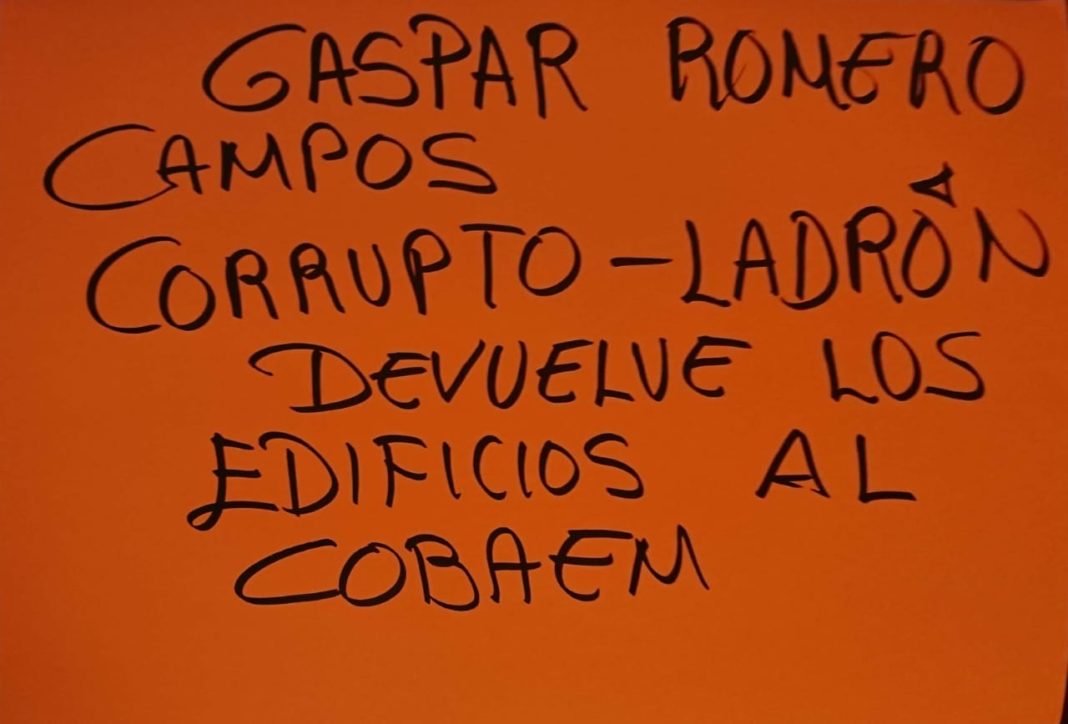 GASPAR ROMERO
CAMPOS
CORRUPTO - LADRÓN
DEVUELVE LOS
EDIFICIOS AL
COBAEM